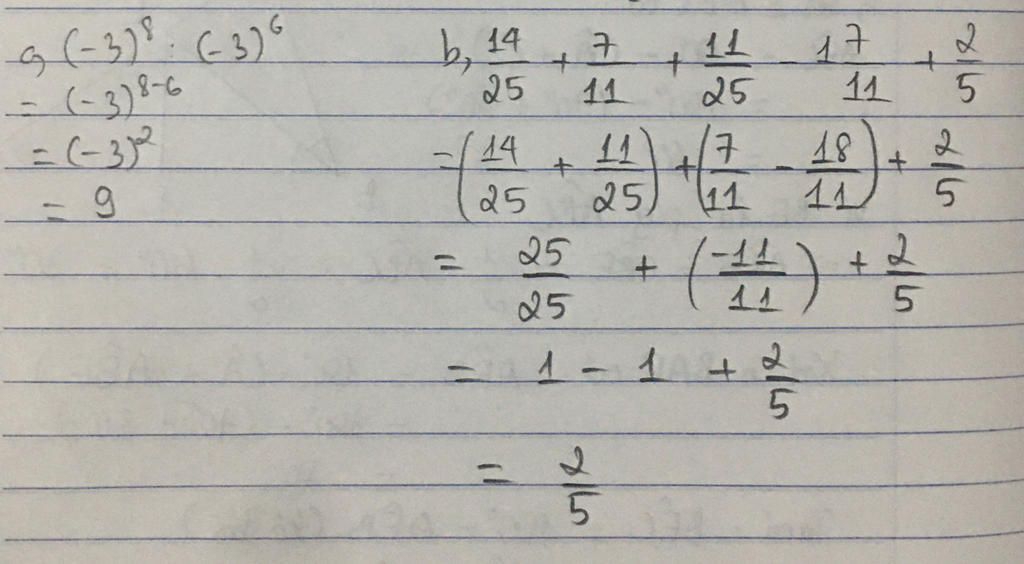 a, (-3)⁸ : (-3)⁶
= (-3)⁸⁻⁶
= (-3)²
= 9
b, 14/25 + 7/11 + 11/25 - 1 7/11 + 2/5
= (14/25 + 11/25) + (7/11 - 18/11) + 2/5
= 25/25 + (-11/11) + 2/5
= 1 - 1 + 2/5
= 2/5